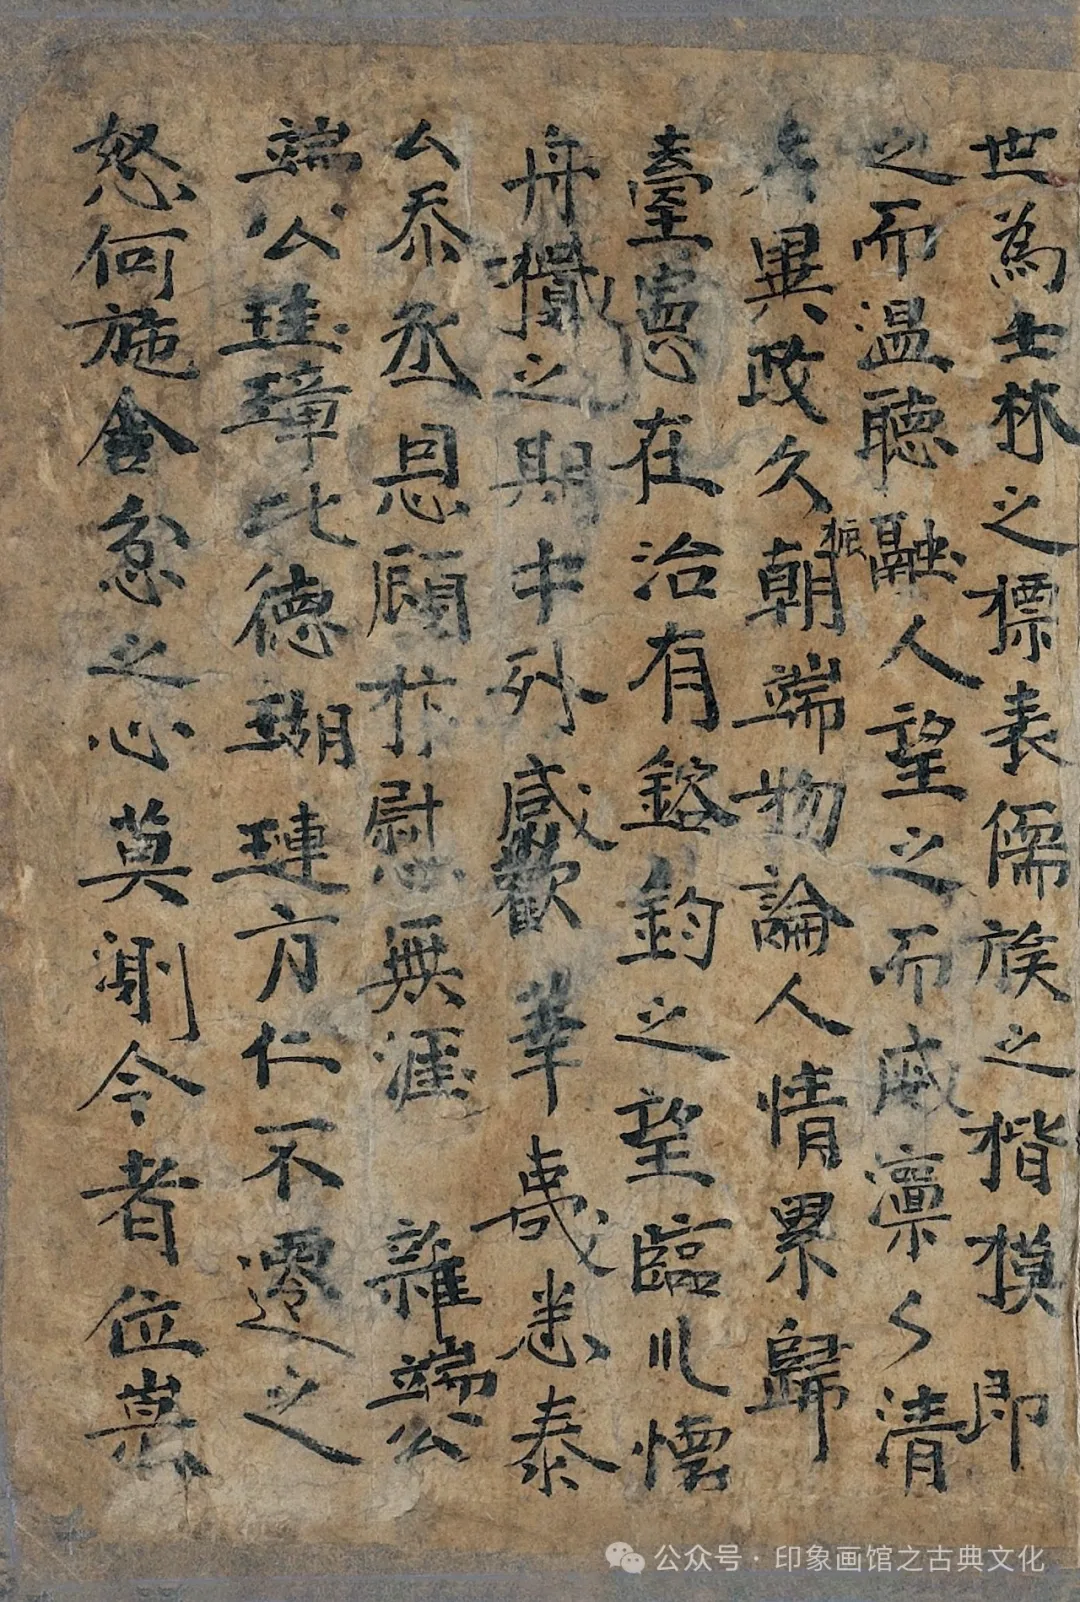 世為士林之標表儒族之楷模即
之而温聽融人望之而威凛〻清
異政久朝端物論人情累歸
振
臺憲在治有鎔鈞之望臨川懷
舟檝之期中外咸歡華夷悉泰
厶忝丞恩顧抃慰無涯 雜端公
端公珪璋比德瑚璉方仁不遷之
怒何施含忽之心莫測今者位崇
公众号·印象画馆之古典文化